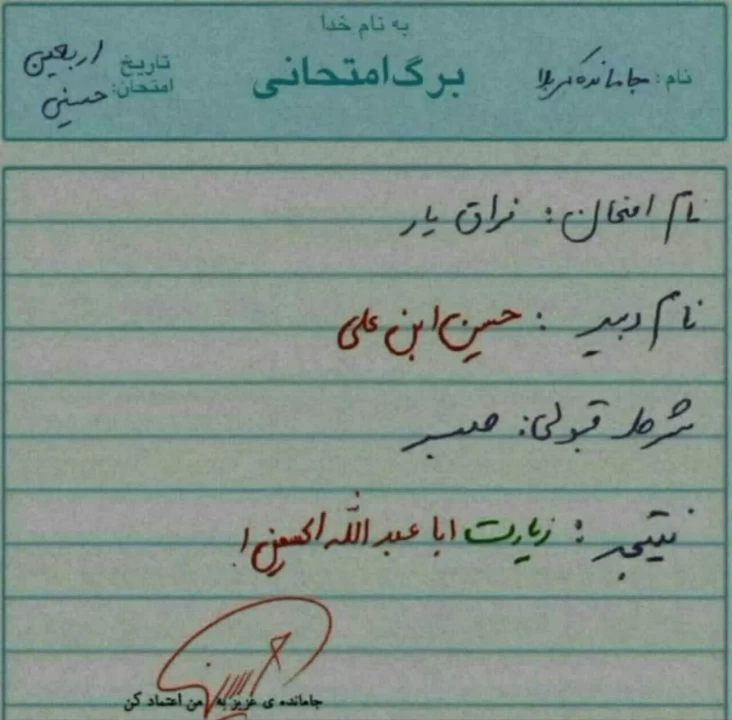 به نام خدا
برگ امتحانی
نام: جامانده کربلا
تاریخ امتحان: اربعین حسینی
نام امتحان: فراق یار
نام دبیر: حسین ابن علی
شرط قبولی: صبر
نتیجه: زیارت ابا عبدالله الحسین!
حسین
جامانده ی عزیز به من اعتماد کن